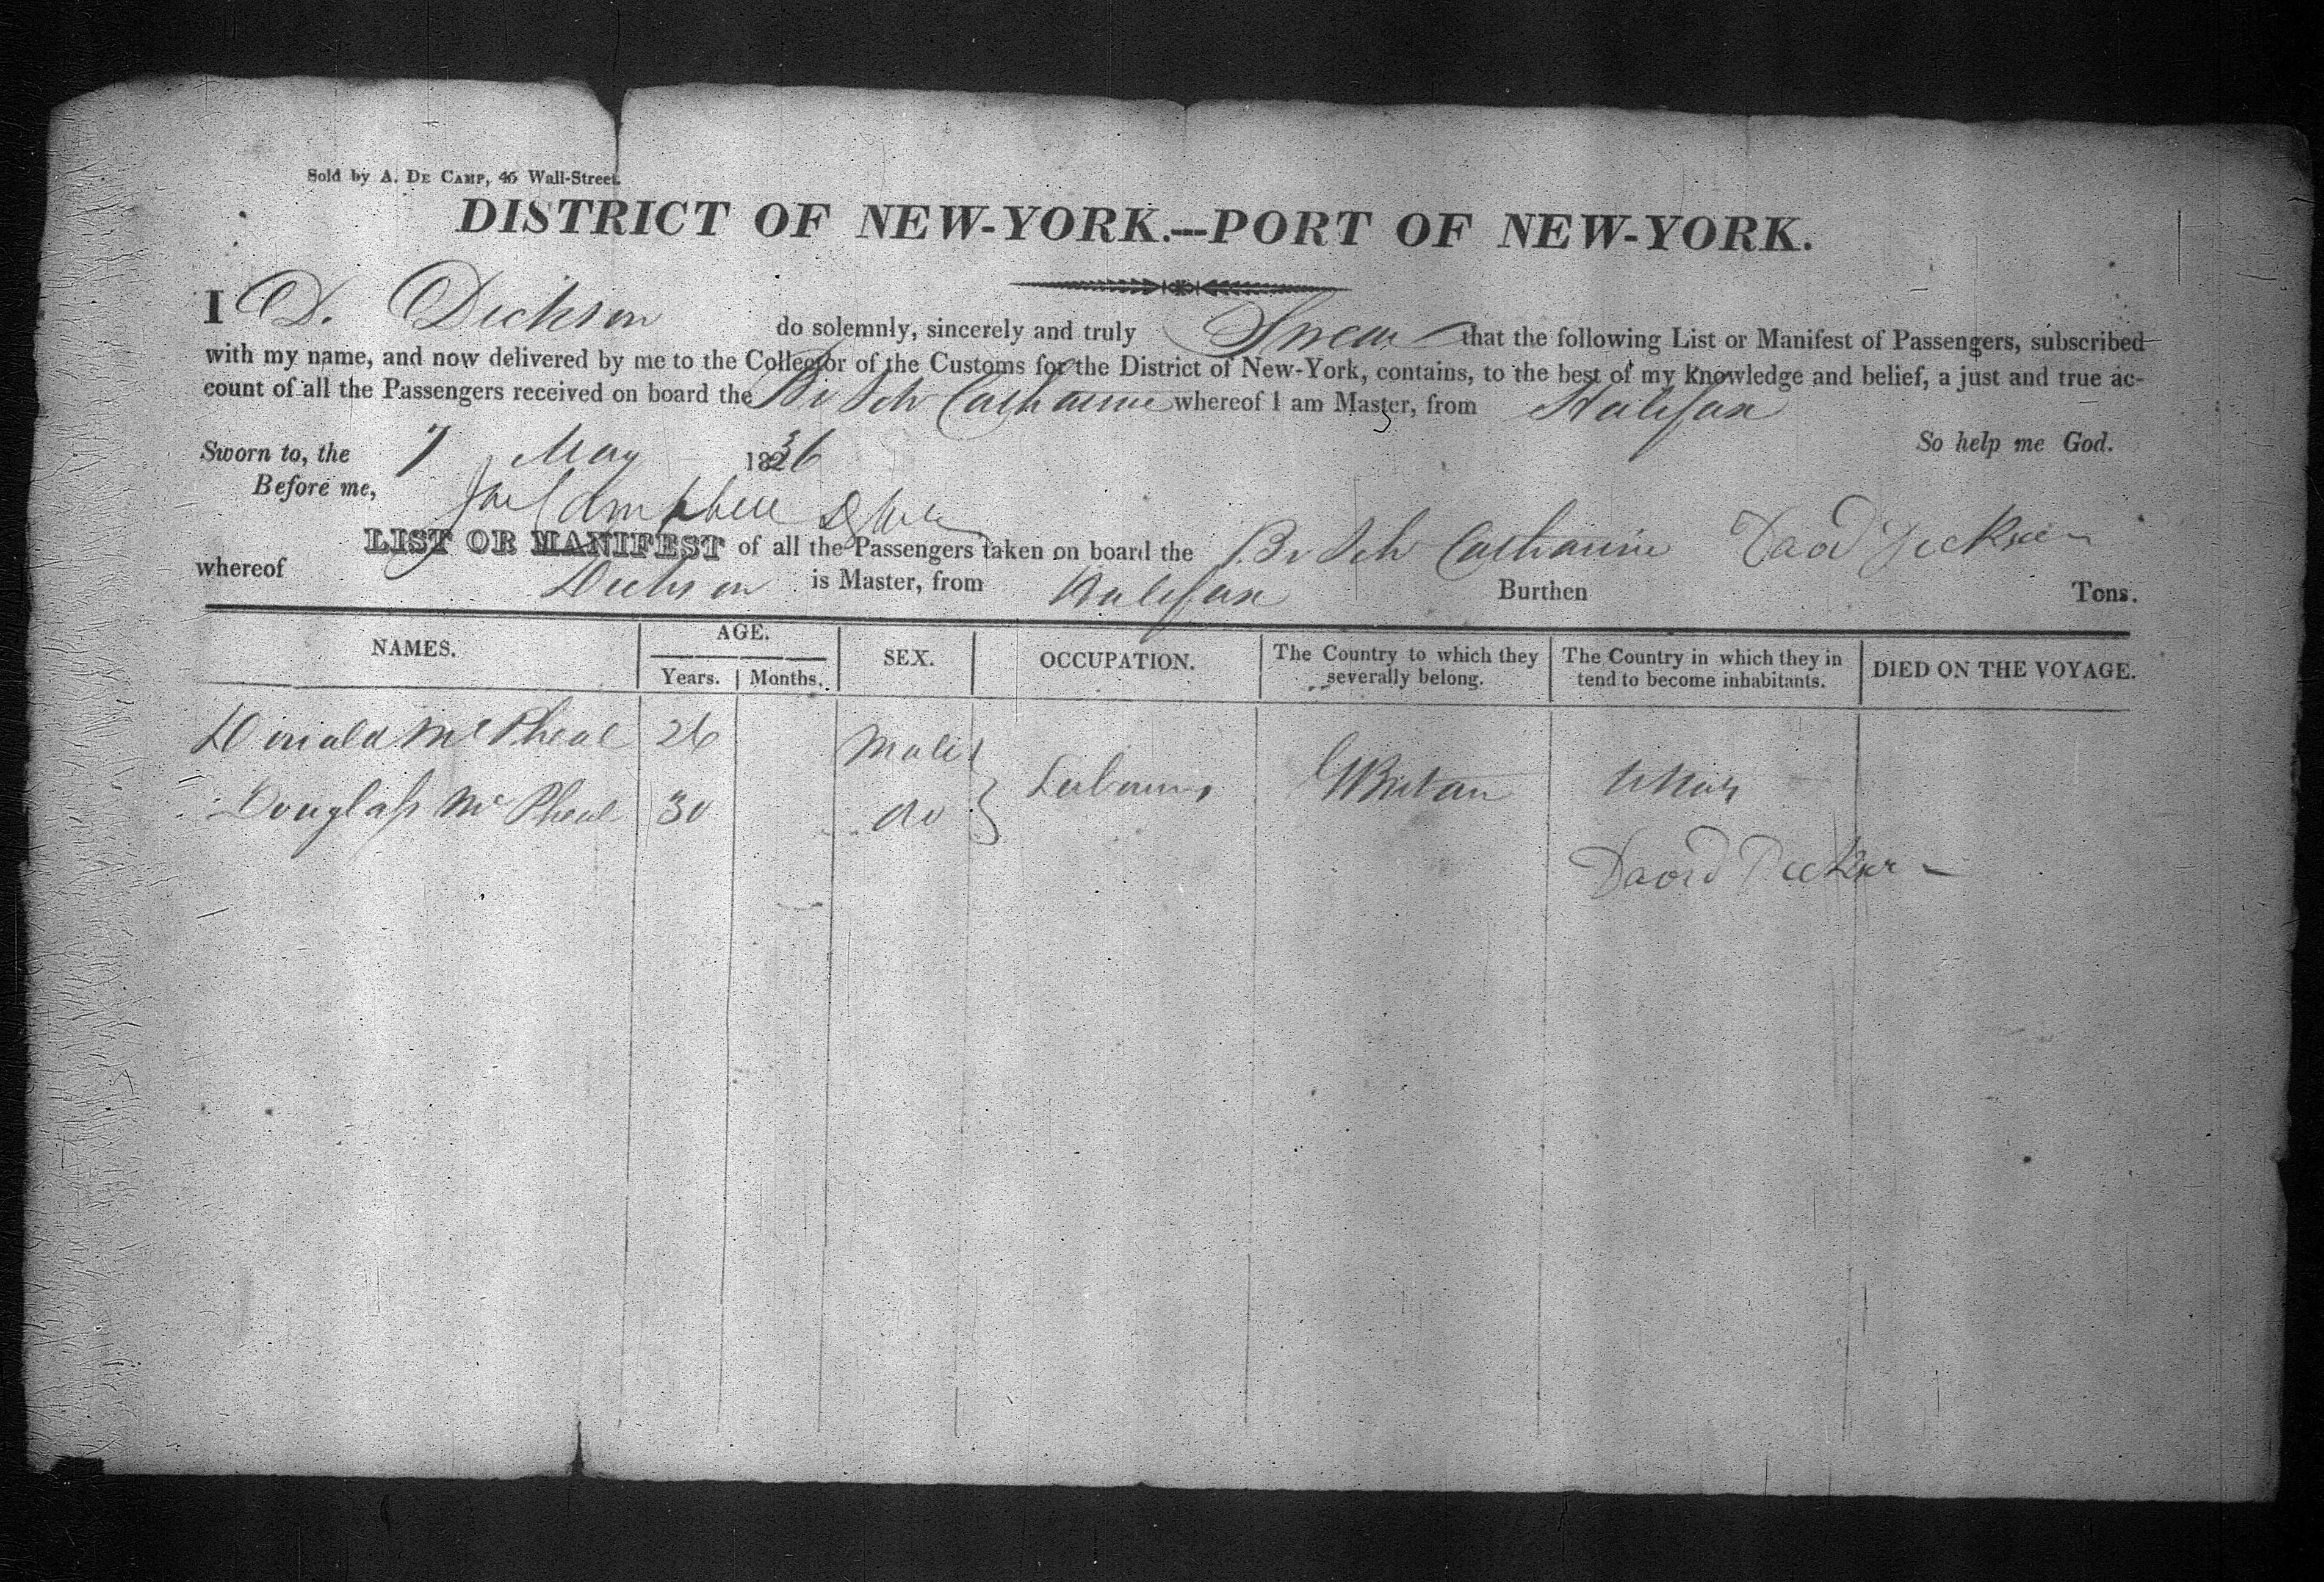 Sold by A. DE CAMP, 45 Wall-Street.
DISTRICT OF NEW-YORK.—PORT OF NEW-YORK.
I D. Dickson do solemnly, sincerely and truly Swear that the following List or Manifest of Passengers, subscribed
with my name, and now delivered by me to the Collector of the Customs for the District of New-York, contains, to the best of my knowledge and belief, a just and true ac-
count of all the Passengers received on board the Br Sch Catharine whereof I am Master, from Halifax
So help me God.
Sworn to, the 7 May 1836
Before me, Campbell
LIST OR MANIFEST of all the Passengers taken on board the Br Sch Catharine David
whereof Dickson is Master, from Halifax Burthen Tons.
NAMES. AGE. SEX. OCCUPATION. The Country to which they severally belong. The Country in which they in tend to become inhabitants. DIED ON THE VOYAGE.
Years. Months.
Donald McPheal 26 Male
Douglass McPheal 30 do Labourers GBritain
David